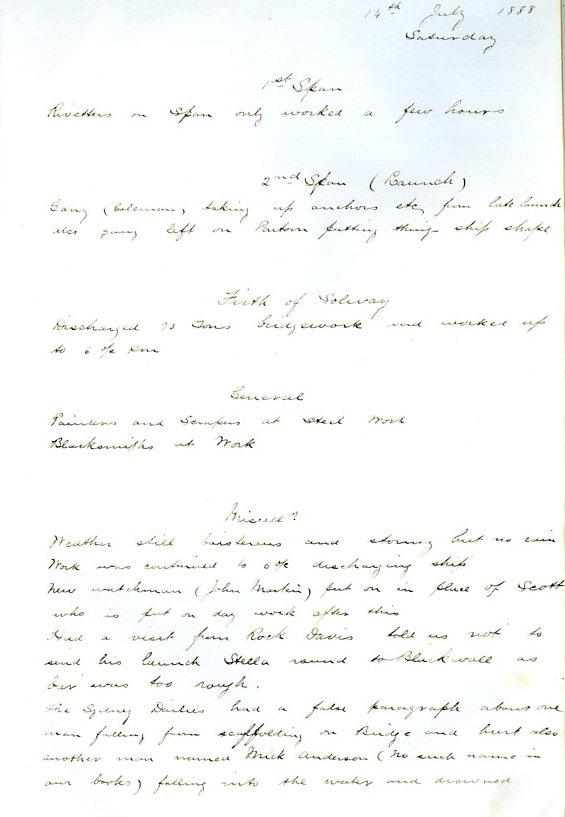 14th July 1888
Saturday
1st Span
Rivetters on Span only worked a few hours
2nd Span (Launch)
Gang (Coleman) taking up anchors etc from late launch
gang left on Pontoon putting things ship shape
Firth of Solway
Discharged 73 Tons bridgework and worked up
to 6 o/c
General
Painters and Scrapers at Steel Work
Blacksmiths at Work
Miscell?
Weather still boisterous and stormy but no rain
Work was continued to 6 o/c discharging ship
New watchman (John Martin) put on in place of Scott
who is put on day work after this
Had a visit from Rock Davis told us not to
send his launch Stella round to Blackwall as
bar was too rough.
The Sydney Dailies had a false paragraph about one
man falling from scaffolding on Bridge and hurt also
another man named Mick Anderson (No such name in
our books) falling into the water and drowned